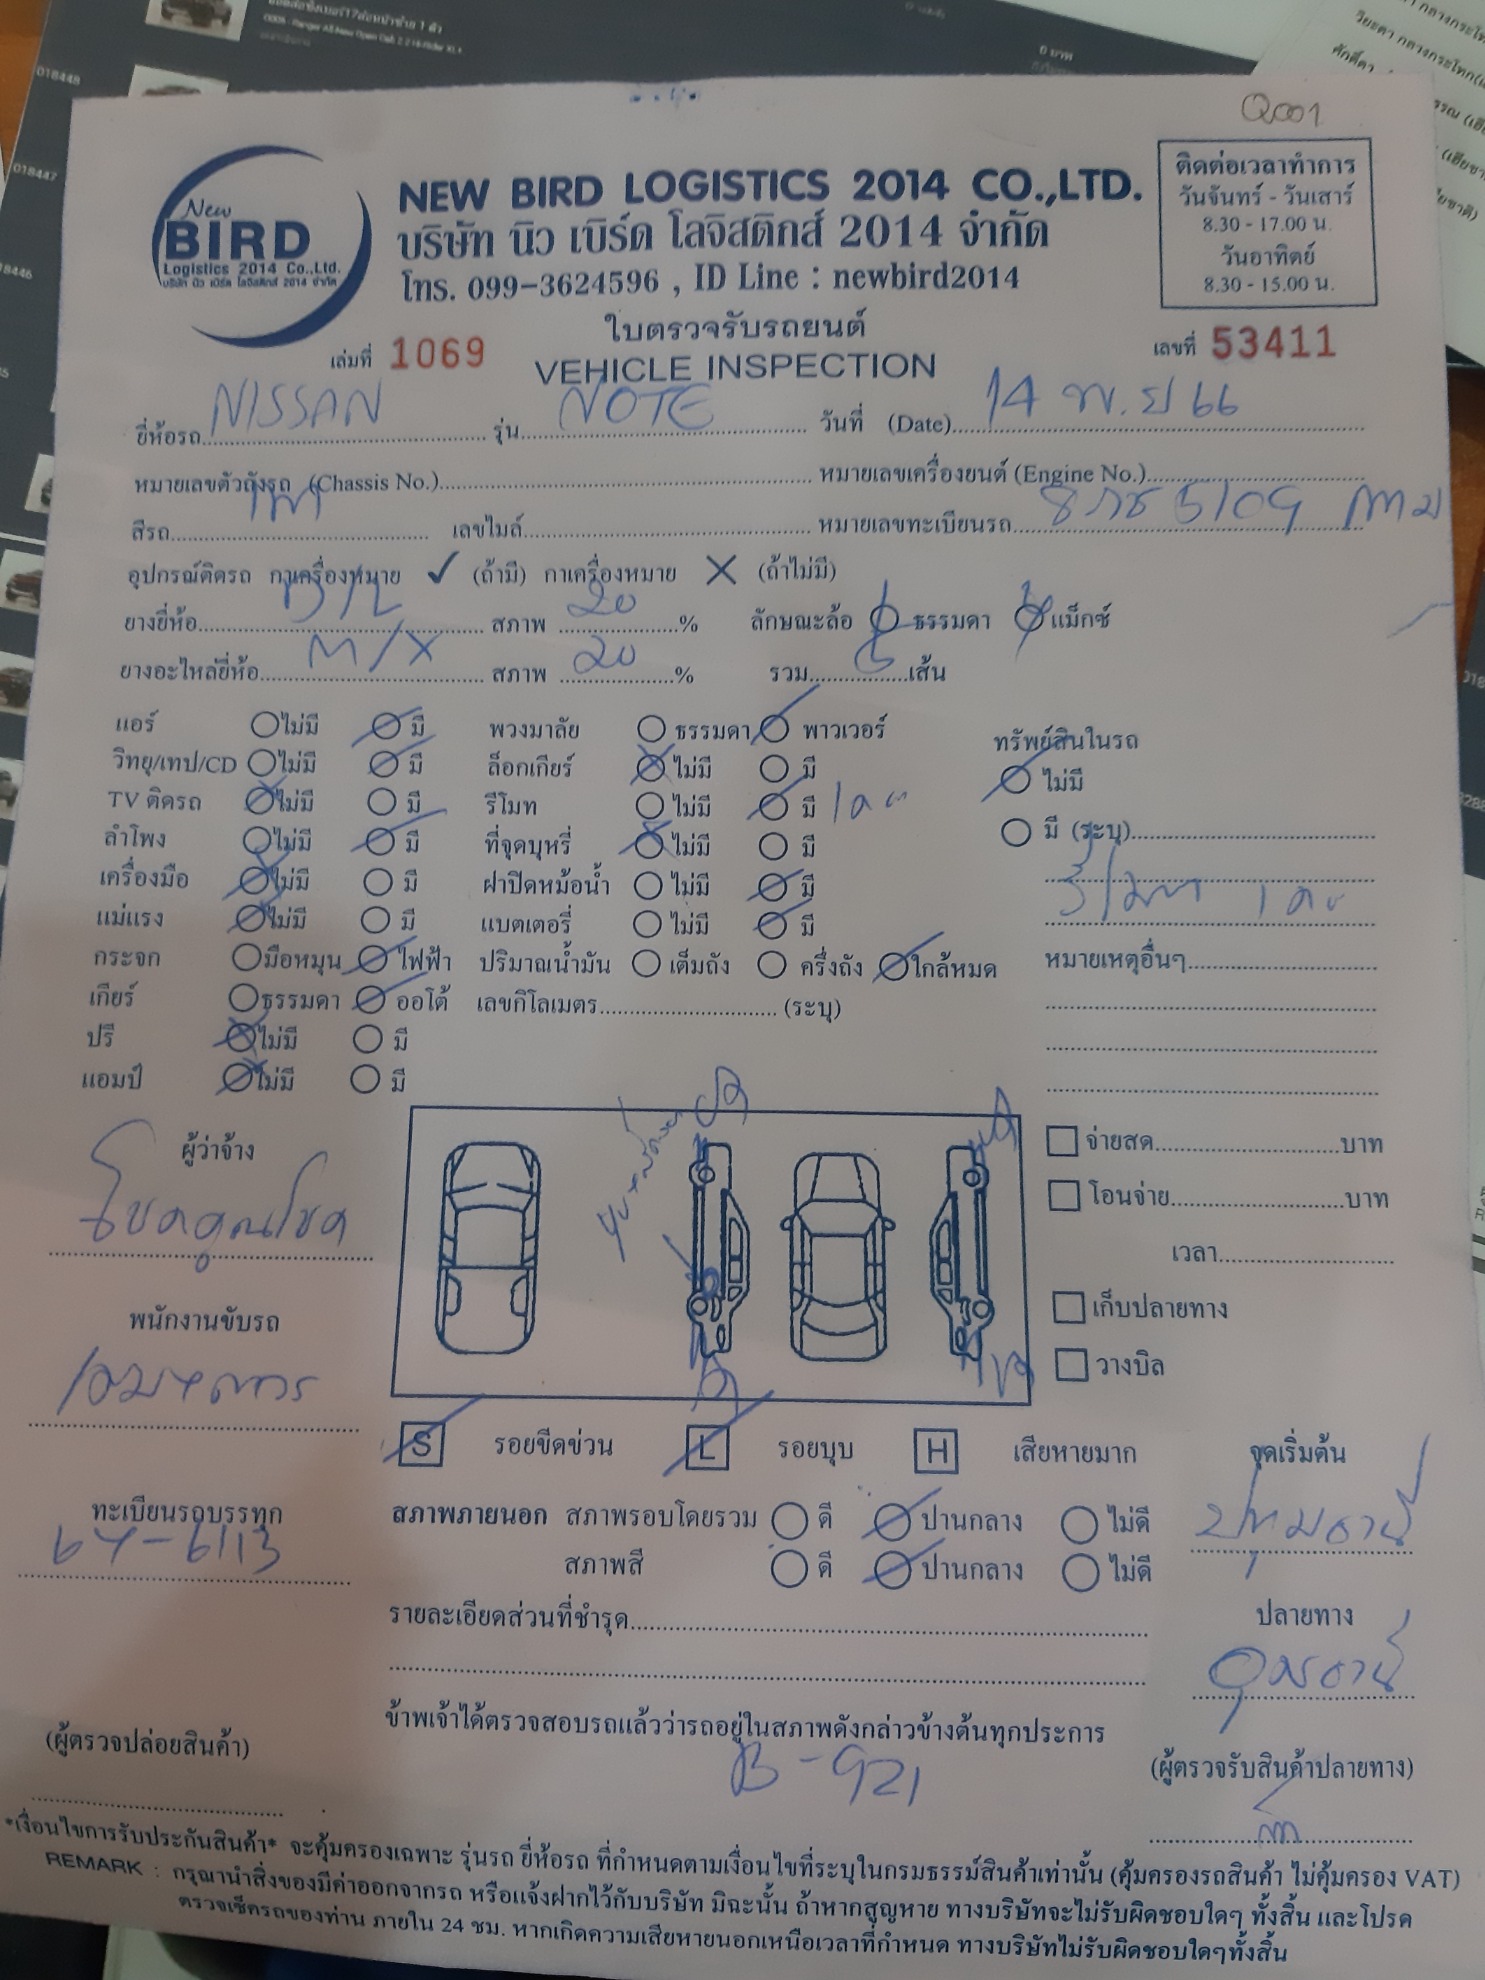 018448
018447
Q001
New
BIRD
Logistics 2014 Co.,Ltd.
บริษัท นิว เบิร์ด โลจิสติกส์ 2014 จำกัด
NEW BIRD LOGISTICS 2014 CO.,LTD.
บริษัท นิว เบิร์ด โลจิสติกส์ 2014 จำกัด
โทร. 099-3624596 , ID Line : newbird2014
ติดต่อเวลาทำการ
วันจันทร์ - วันเสาร์
8.30 - 17.00 น.
วันอาทิตย์
8.30 - 15.00 น.
ใบตรวจรับรถยนต์
เล่มที่ 1069 VEHICLE INSPECTION เลขที่ 53411
ยี่ห้อรถ NISSAN รุ่น NOTE วันที่ (Date) 14 พ.ย 66
หมายเลขตัวถังรถ (Chassis No.) หมายเลขเครื่องยนต์ (Engine No.)
สีรถ เทา เลขไมล์ หมายเลขทะเบียนรถ 8กช 5109 กทม
อุปกรณ์ติดรถ กาเครื่องหมาย ✓ (ถ้ามี) กาเครื่องหมาย ✕ (ถ้าไม่มี)
ยางยี่ห้อ D/L สภาพ 20 % ลักษณะล้อ ธรรมดา แม็กซ์
ยางอะไหล่ยี่ห้อ M/X สภาพ 20 % รวม 5 เส้น
แอร์ ไม่มี มี พวงมาลัย ธรรมดา พาวเวอร์ ทรัพย์สินในรถ
วิทยุ/เทป/CD ไม่มี มี ล็อกเกียร์ ไม่มี มี ไม่มี
TV ติดรถ ไม่มี มี รีโมท ไม่มี มี มี (ระบุ)
ลำโพง ไม่มี มี ที่จุดบุหรี่ ไม่มี มี
เครื่องมือ ไม่มี มี ฝาปิดหม้อน้ำ ไม่มี มี รีโมท
แม่แรง ไม่มี มี แบตเตอรี่ ไม่มี มี
กระจก มือหมุน ไฟฟ้า ปริมาณน้ำมัน เต็มถัง ครึ่งถัง ใกล้หมด หมายเหตุอื่นๆ
เกียร์ ธรรมดา ออโต้ เลขกิโลเมตร (ระบุ)
ปรี ไม่มี มี
แอมป์ ไม่มี มี
ผู้ว่าจ้าง
โชคคูณโชค
พนักงานขับรถ
ทะเบียนรถบรรทุก
67-6113
จ่ายสด บาท
โอนจ่าย บาท
เวลา
เก็บปลายทาง
วางบิล
S รอยขีดข่วน L รอยบุบ H เสียหายมาก
สภาพภายนอก สภาพรอบโดยรวม ดี ปานกลาง ไม่ดี
สภาพสี ดี ปานกลาง ไม่ดี
จุดเริ่มต้น
ปทุมธานี
ปลายทาง
อุดรธานี
รายละเอียดส่วนที่ชำรุด
ข้าพเจ้าได้ตรวจสอบรถแล้วว่ารถอยู่ในสภาพดังกล่าวข้างต้นทุกประการ
B-921
(ผู้ตรวจปล่อยสินค้า) (ผู้ตรวจรับสินค้าปลายทาง)
*เงื่อนไขการรับประกันสินค้า* จะคุ้มครองเฉพาะ รุ่นรถ ยี่ห้อรถ ที่กำหนดตามเงื่อนไขที่ระบุในกรมธรรม์สินค้าเท่านั้น (คุ้มครองรถสินค้า ไม่คุ้มครอง VAT)
REMARK : กรุณานำสิ่งของมีค่าออกจากรถ หรือแจ้งฝากไว้กับบริษัท มิฉะนั้น ถ้าหากสูญหาย ทางบริษัทจะไม่รับผิดชอบใดๆ ทั้งสิ้น และโปรด
ตรวจเช็ครถของท่าน ภายใน 24 ชม. หากเกิดความเสียหายนอกเหนือเวลาที่กำหนด ทางบริษัทไม่รับผิดชอบใดๆทั้งสิ้น